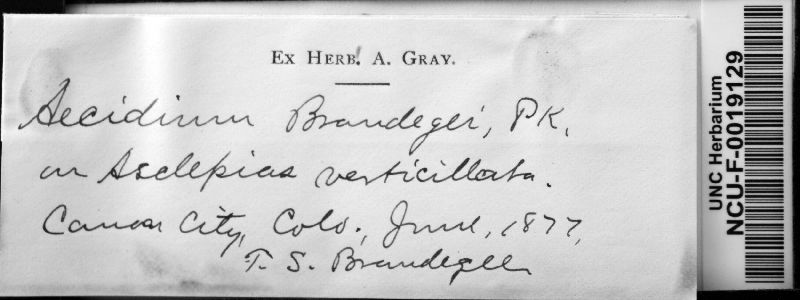 Ex Herb. A. Gray.
Aecidium Brandegei, PK.
on Asclepias verticillata.
Canon City, Colo., June, 1877,
T. S. Brandegee
UNC Herbarium
NCU-F-0019129